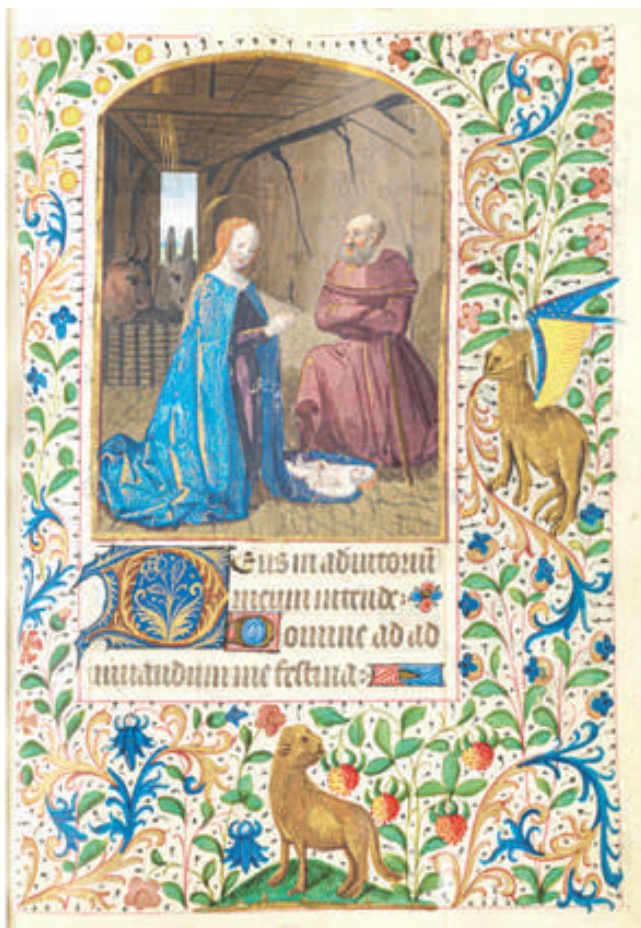 Deus in adiutoriū
meum intende:
Domine ad ad
iuuandum me festina: